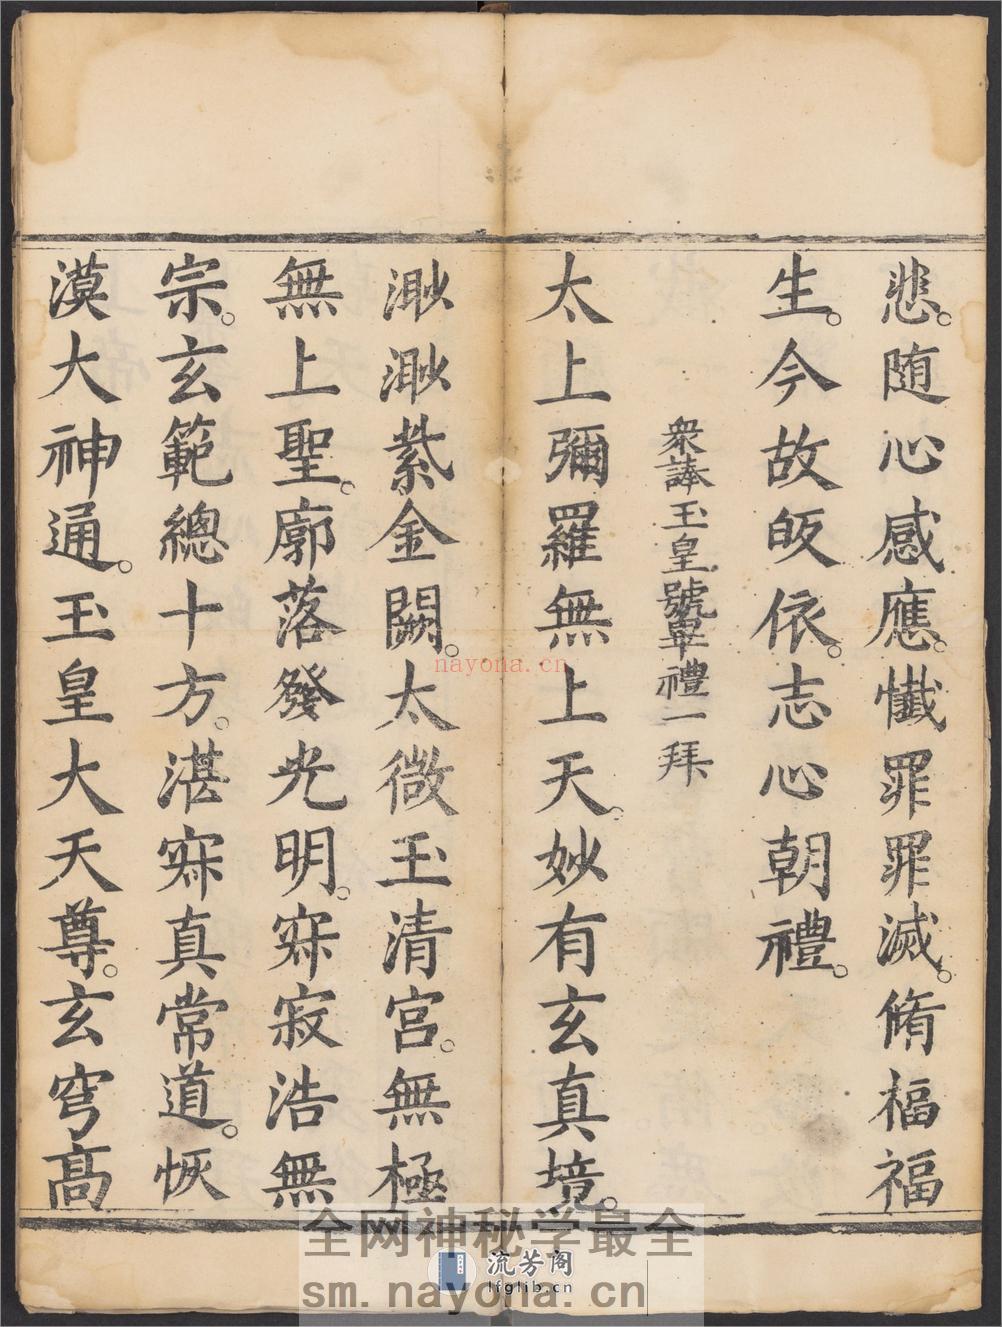 悲。随心感應。懺罪罪滅。脩福福
生。今故皈依。志心朝禮。
衆諱玉皇號畢禮一拜
太上彌羅無上天。妙有玄真境。
渺渺紫金闕。太微玉清宮。無極
無上聖。廓落發光明。寂寂浩無
宗。玄範總十方。湛寂真常道。恢
漠大神通。玉皇大天尊。玄穹高
nayona.cn
全网神秘学最全
流芳阁
lfglib.cn
sm.nayona.cn